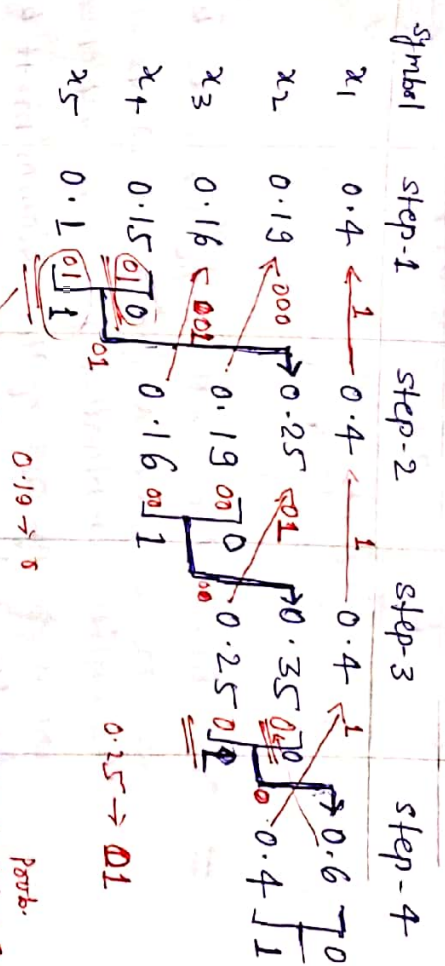 symbol step-1 step-2 step-3 step-4
x1 0.4 1 0.4 1 0.4 1 0.6 0
x2 0.19 000 0.25 01 0.35 00 0 0 0.4 1
x3 0.16 001 0.19 00 0 00 0.25 0 1
x4 0.15 01 0 01 0.16 00 1
x5 0.1 01 1
0.19 → 0
0.25 → 01
Prob.